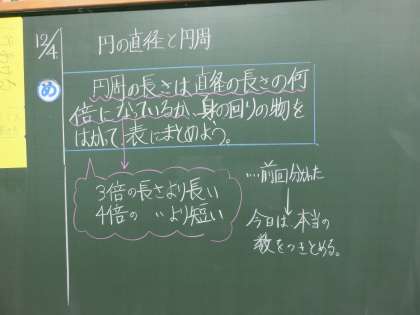 12/4
円の直径と円周
め
円周の長さは直径の長さの何
倍になっているか、身の回りの物を
はかって表にまとめよう。
3倍の長さより長い
4倍の 〃 より短い
…前回分かった
今日は、本当の
数をつきとめる。